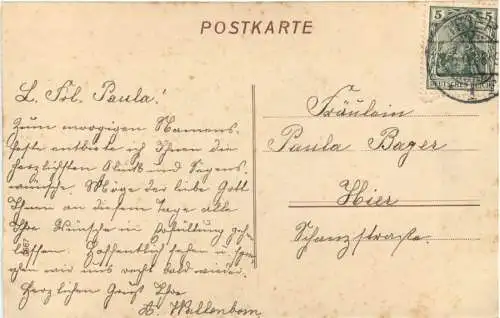 POSTKARTE
5 5
DEUTSCHES REICH
L. Frl. Paula!
Zum morgigen Namens-
feste entbiete ich Ihnen die
herzlichsten Glück- und Segens-
wünsche. Möge der liebe Gott
Ihnen an diesem Tage alle
Ihre Wünsche in Erfüllung geh-
en lassen. Hoffentlich sehen u. spre-
chen wir uns recht bald wieder.
Herzlichen Gruß Ihre
A. Willenborn.
Fräulein
Paula Bager
Hier
Schanzstraße.